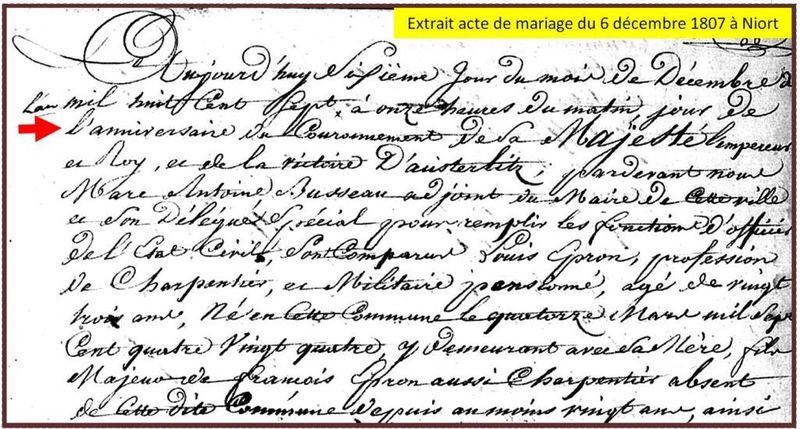 Extrait acte de mariage du 6 décembre 1807 à Niort
Aujourd'huy Sixième Jour du mois de Décembre
L'an mil huit Cent Sept, à onze heures du matin, jour de
l'anniversaire du Couronnement de Sa Majesté l'empereur
et Roy, et de la victoire D'austerlitz, pardevant nous
Marc Antoine Jusseau adjoint du Maire de Cette ville
et Son Délégué Spécial pour remplir les fonctions d'officier
de l'Etat Civil, Sont Comparus Louis Epron, profession
de Charpentier, et Militaire pensionné, agé de vingt
trois ans, Né en Cette Commune le quatorze Mars mil Sept
Cent quatre Vingt quatre, y demeurant avec Sa Mère, fils
Majeur de françois Epron aussi Charpentier absent
de Cette dite Commune depuis au moins vingt ans, ainsi